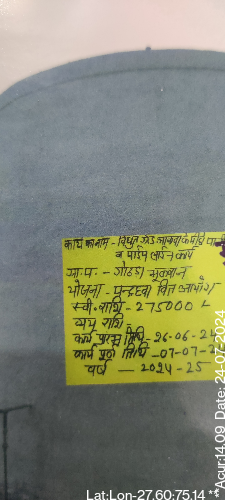 कार्य का नाम - विद्युत
व पाईप लाईन कार्य
ग्रा.प. - गोठडा
योजना - पन्द्रहवा वित्त आयोग
स्वी. राशि - 275000 -
व्यय राशि
कार्य प्रारम्भ तिथि - 26-06-2
कार्य पूर्ण तिथि - 07-07-2
वर्ष — 2024-25
Lat:Lon-27.60:75.14 **Acur:14.09 Date: 24-07-2024